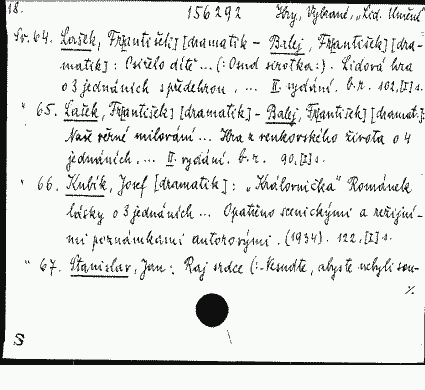 18. 156292 Hry, Vybrané, „Lid. Umění"
Sv. 64. Lašek, František [dramatik – Balej, František] [dra-
matik]: Osiřelo dítě ... (: Osud sirotka :). Lidová hra
o 3 jednáních s předehrou, ... II. vydání. b. r. 102, [I] s.
" 65. Lašek, František] [dramatik] – Balej, František] [dramat.]:
Naše věrné milování ... Hra z venkovského života o 4
jednáních, ... II. vydání. b. r. 90, [I] s.
" 66. Kubík, Josef [dramatik]: „Královnička" Románek
lásky o 3 jednáních ... Opatřeno scenickými a režijní-
mi poznámkami autorovými. (1934). 122, [I] s.
" 67. Stanislav, Jan: Raj srdce (: Nesuďte, abyste nebyli sou-
%
S